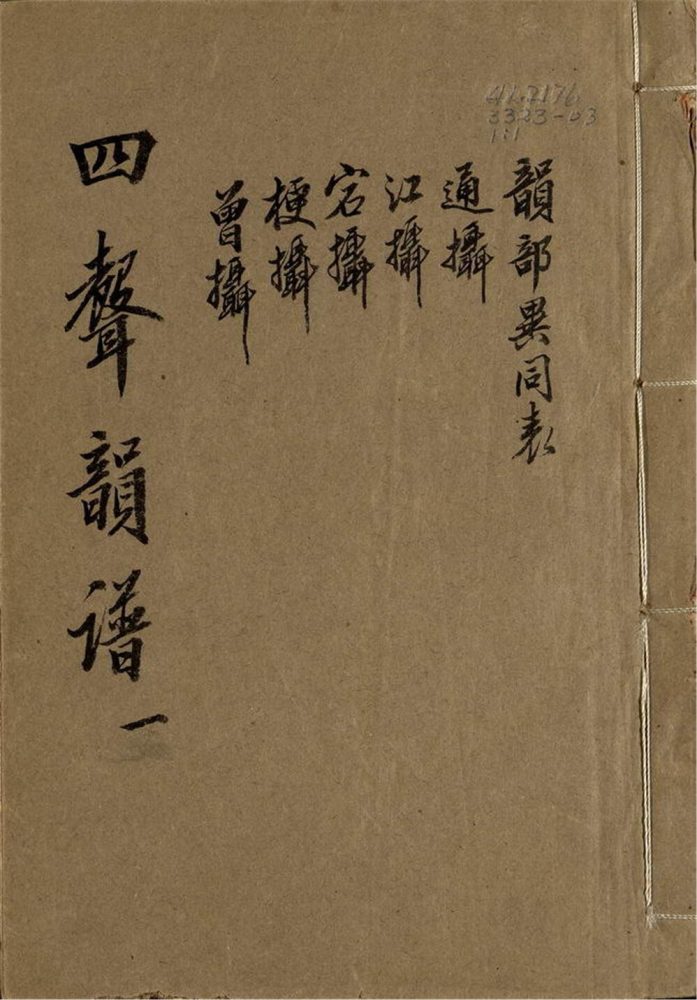 41.2176
3323-03
1:1
韻部異同表
通攝
江攝
宕攝
梗攝
曾攝
四聲韻譜 一